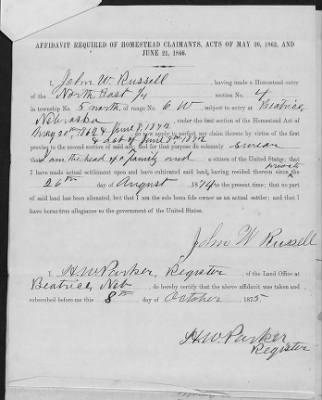 AFFIDAVIT REQUIRED OF HOMESTEAD CLAIMANTS, ACTS OF MAY 20, 1862, AND
JUNE 21, 1866.
I, John W. Russell, having made a Homestead entry
of the North East 1/4 section No. 4
in township No. 5 north of range No. 6 W, subject to entry at Beatrice
Nebraska, under the first section of the Homestead Act of
May 20th 1862 & June 8, 1872 do now apply to perfect my claim thereto by virtue of the first
proviso to the second section of said act; and for that purpose do solemnly swear
that I am the head of a family and a citizen of the United States; that
I have made actual settlement upon and cultivated said land, having resided thereon since the
26th day of August 1874 to the present time; that no part
of said land has been alienated, but that I am the sole bona fide owner as an actual settler; and that I
have borne true allegiance to the government of the United States.
John W Russell
I, H.W. Parker, Register, of the Land Office at
Beatrice, Neb do hereby certify that the above affidavit was taken and
subscribed before me this 8th day of October 1875
H.W. Parker
Register